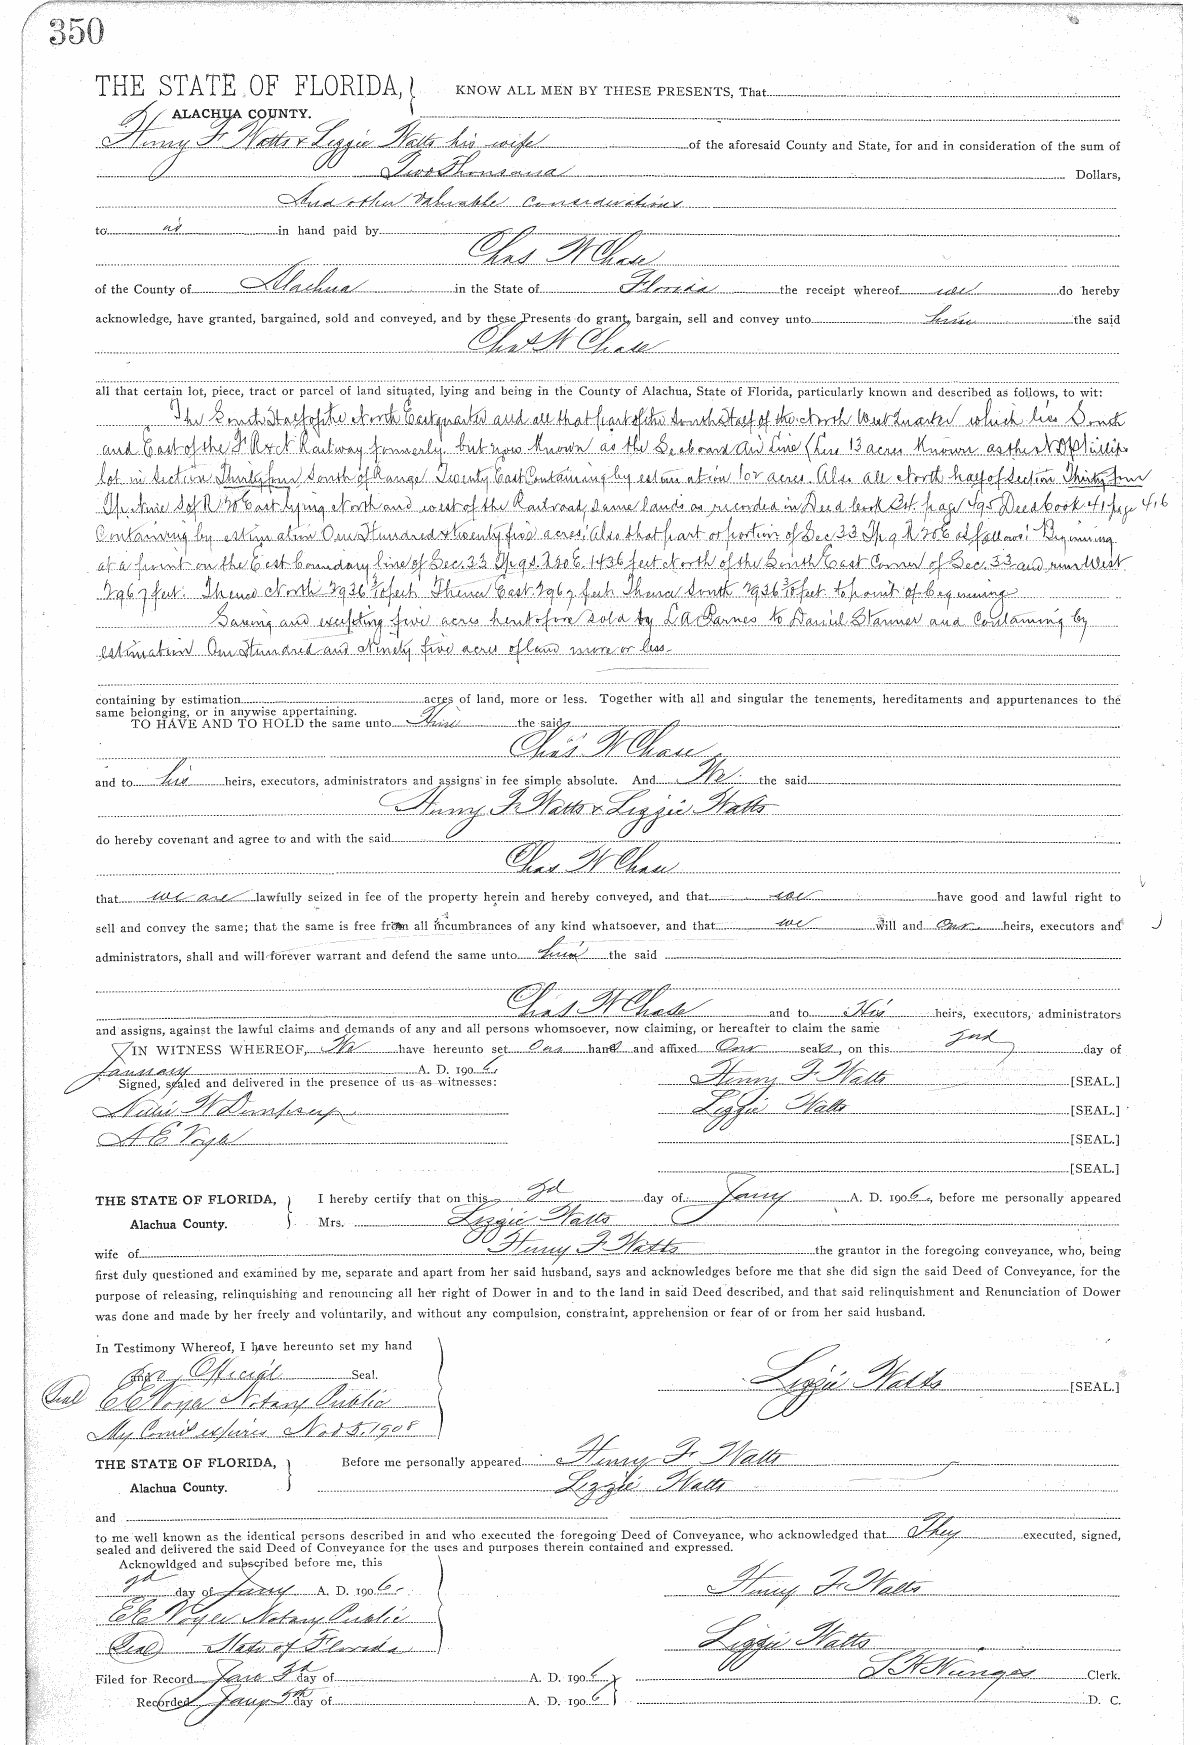 350
THE STATE OF FLORIDA, KNOW ALL MEN BY THESE PRESENTS, That
ALACHUA COUNTY.
Henry F Watts & Lizzie Watts his wife of the aforesaid County and State, for and in consideration of the sum of
Two Thousand Dollars,
And other valuable considerations
to us in hand paid by
Chas W Chase
of the County of Alachua in the State of Florida the receipt whereof we do hereby
acknowledge, have granted, bargained, sold and conveyed, and by these Presents do grant, bargain, sell and convey unto him the said
Chas W Chase
all that certain lot, piece, tract or parcel of land situated, lying and being in the County of Alachua, State of Florida, particularly known and described as follows, to wit:
The South Half of the North East quarter and all that part of the South Half of the North West Quarter which lies South
and East of the F R & N Railway formerly, but now Known as the Seaboard Air Line (Less 13 acres Known as the Phillips
lot in Section Thirty four South of Range Twenty East Containing by estimation 102 acres. Also all North half of Section Thirty four
Tp nine S of R 20 East lying North and west of the Railroad, same lands as recorded in Deed book 34 page 495 Deed book 41 page 416
Containing by estimation One Hundred & twenty five acres, Also that part or portion of Sec 33 Tp 9 R 20 E as follows: Beginning
at a point on the East boundary line of Sec. 33 Tp 9 S. R 20 E. 1436 feet North of the South East Corner of Sec. 33 and run West
2967 feet. Thence North 2936 3/10 feet Thence East 2967 feet Thence South 2936 3/10 feet to point of beginning
Saving and excepting five acres heretofore sold by L A Barnes to Daniel Stanner and Containing by
estimation One Hundred and Ninety five acres of land more or less.
containing by estimation acres of land, more or less. Together with all and singular the tenements, hereditaments and appurtenances to the
same belonging, or in anywise appertaining.
TO HAVE AND TO HOLD the same unto Him the said
Chas W Chase
and to his heirs, executors, administrators and assigns in fee simple absolute. And We the said
Henry F Watts & Lizzie Watts
do hereby covenant and agree to and with the said
Chas W Chase
that we are lawfully seized in fee of the property herein and hereby conveyed, and that we have good and lawful right to
sell and convey the same; that the same is free from all incumbrances of any kind whatsoever, and that we will and our heirs, executors and
administrators, shall and will forever warrant and defend the same unto him the said
Chas W Chase and to His heirs, executors, administrators
and assigns, against the lawful claims and demands of any and all persons whomsoever, now claiming, or hereafter to claim the same
IN WITNESS WHEREOF, We have hereunto set Our hands and affixed Our seals, on this 3rd day of
January A. D. 1906
Signed, sealed and delivered in the presence of us as witnesses: Henry F Watts [SEAL.]
Willie W Dempsey Lizzie Watts [SEAL.]
A E Voyle [SEAL.]
[SEAL.]
THE STATE OF FLORIDA, I hereby certify that on this 3d day of Jany A. D. 1906, before me personally appeared
Alachua County. Mrs. Lizzie Watts
wife of Henry F Watts the grantor in the foregoing conveyance, who, being
first duly questioned and examined by me, separate and apart from her said husband, says and acknowledges before me that she did sign the said Deed of Conveyance, for the
purpose of releasing, relinquishing and renouncing all her right of Dower in and to the land in said Deed described, and that said relinquishment and Renunciation of Dower
was done and made by her freely and voluntarily, and without any compulsion, constraint, apprehension or fear of or from her said husband.
In Testimony Whereof, I have hereunto set my hand
and Official Seal. Lizzie Watts [SEAL.]
Seal E E Voyle Notary Public
My Comis expires Nov 5. 1908
THE STATE OF FLORIDA, Before me personally appeared Henry F Watts
Alachua County. Lizzie Watts
and
to me well known as the identical persons described in and who executed the foregoing Deed of Conveyance, who acknowledged that They executed, signed,
sealed and delivered the said Deed of Conveyance for the uses and purposes therein contained and expressed.
Acknowldged and subscribed before me, this
3d day of Jany A. D. 1906. Henry F Watts
E E Voyle Notary Public
Seal State of Florida Lizzie Watts
Filed for Record Jany 3d day of A. D. 1906 Clerk.
Recorded Jany 5th day of A. D. 1906 D. C.